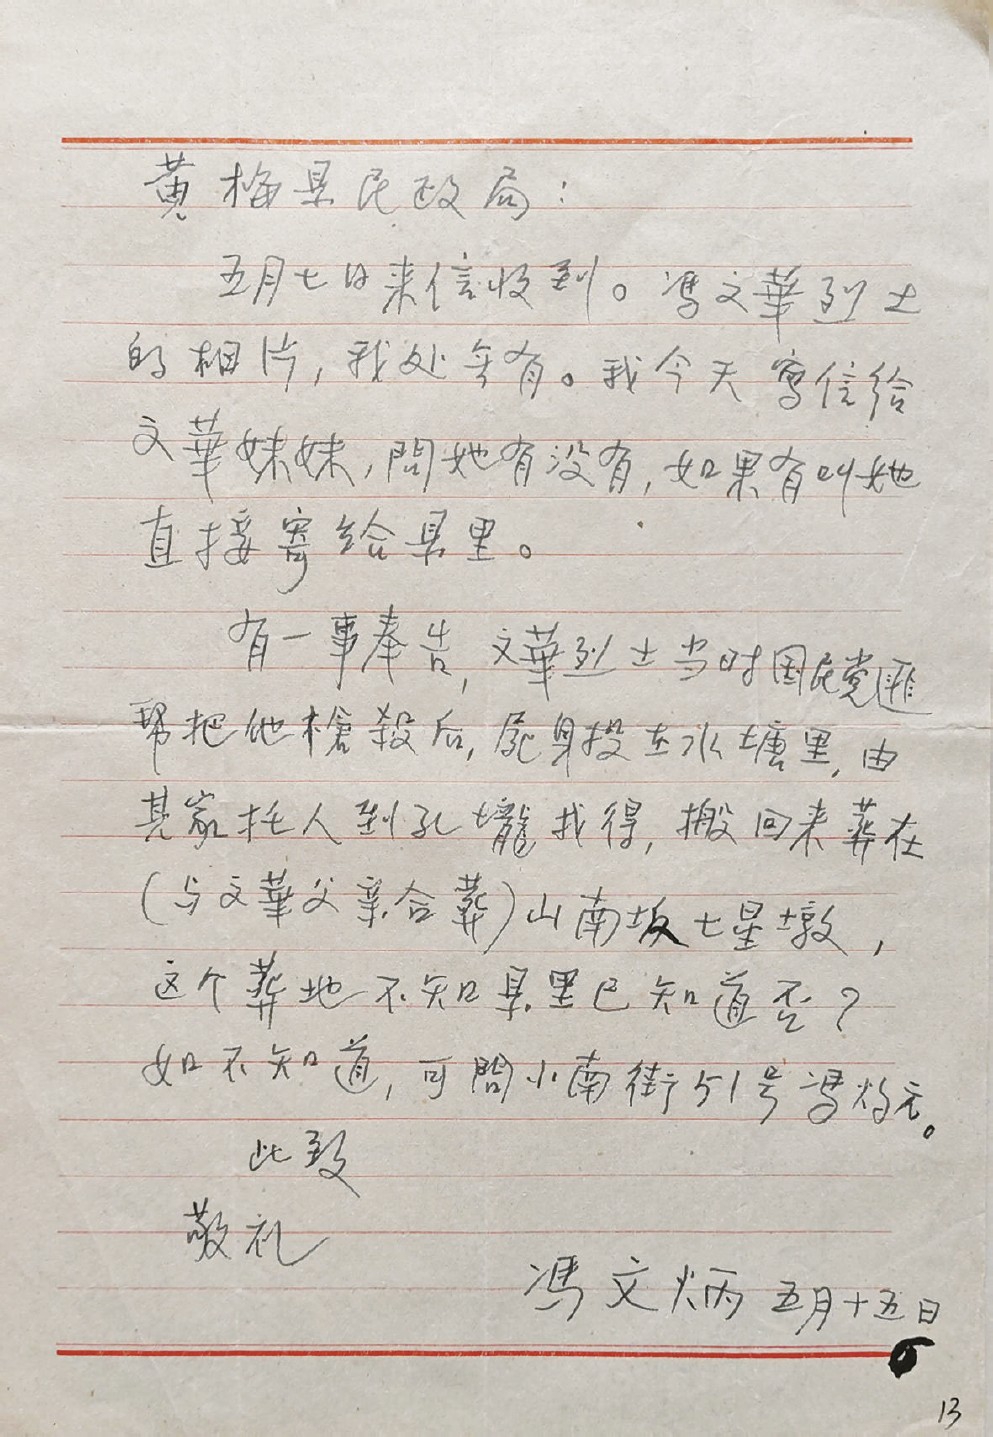 黄梅县民政局：
五月七日来信收到。馮文華烈士
的相片，我处无有。我今天寫信给
文華妹妹，問她有没有，如果有叫她
直接寄给县里。
有一事奉告，文華烈士当时国民党匪
帮把他槍殺后，屍身投在水塘里，由
其家托人到孔壠找得，搬回来葬在
（与文華父亲合葬）山南坂七星墩，
这个葬地不知县里已知道否？
如不知道，可問小南街51号馮
此致
敬礼
馮文炳 五月十五日
13